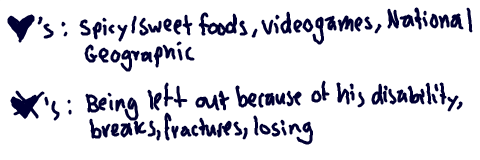 ♥'s: Spicy/sweet foods, videogames, National
Geographic
's: Being left out because of his disability,
breaks, fractures, losing